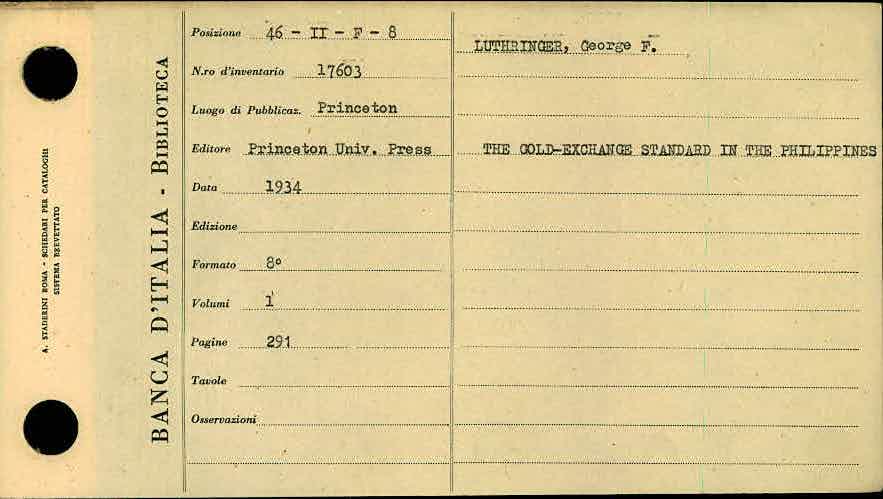 A. STADERINI ROMA - SCHEDARI PER CATALOGHI
SISTEMA BREVETTATO
BANCA D'ITALIA - BIBLIOTECA
Posizione 46 - II - F - 8
N.ro d'inventario 17603
Luogo di Pubblicaz. Princeton
Editore Princeton Univ. Press
Data 1934
Edizione
Formato 8°
Volumi 1
Pagine 291
Tavole
Osservazioni
LUTHRINGER, George F.
THE GOLD-EXCHANGE STANDARD IN THE PHILIPPINES